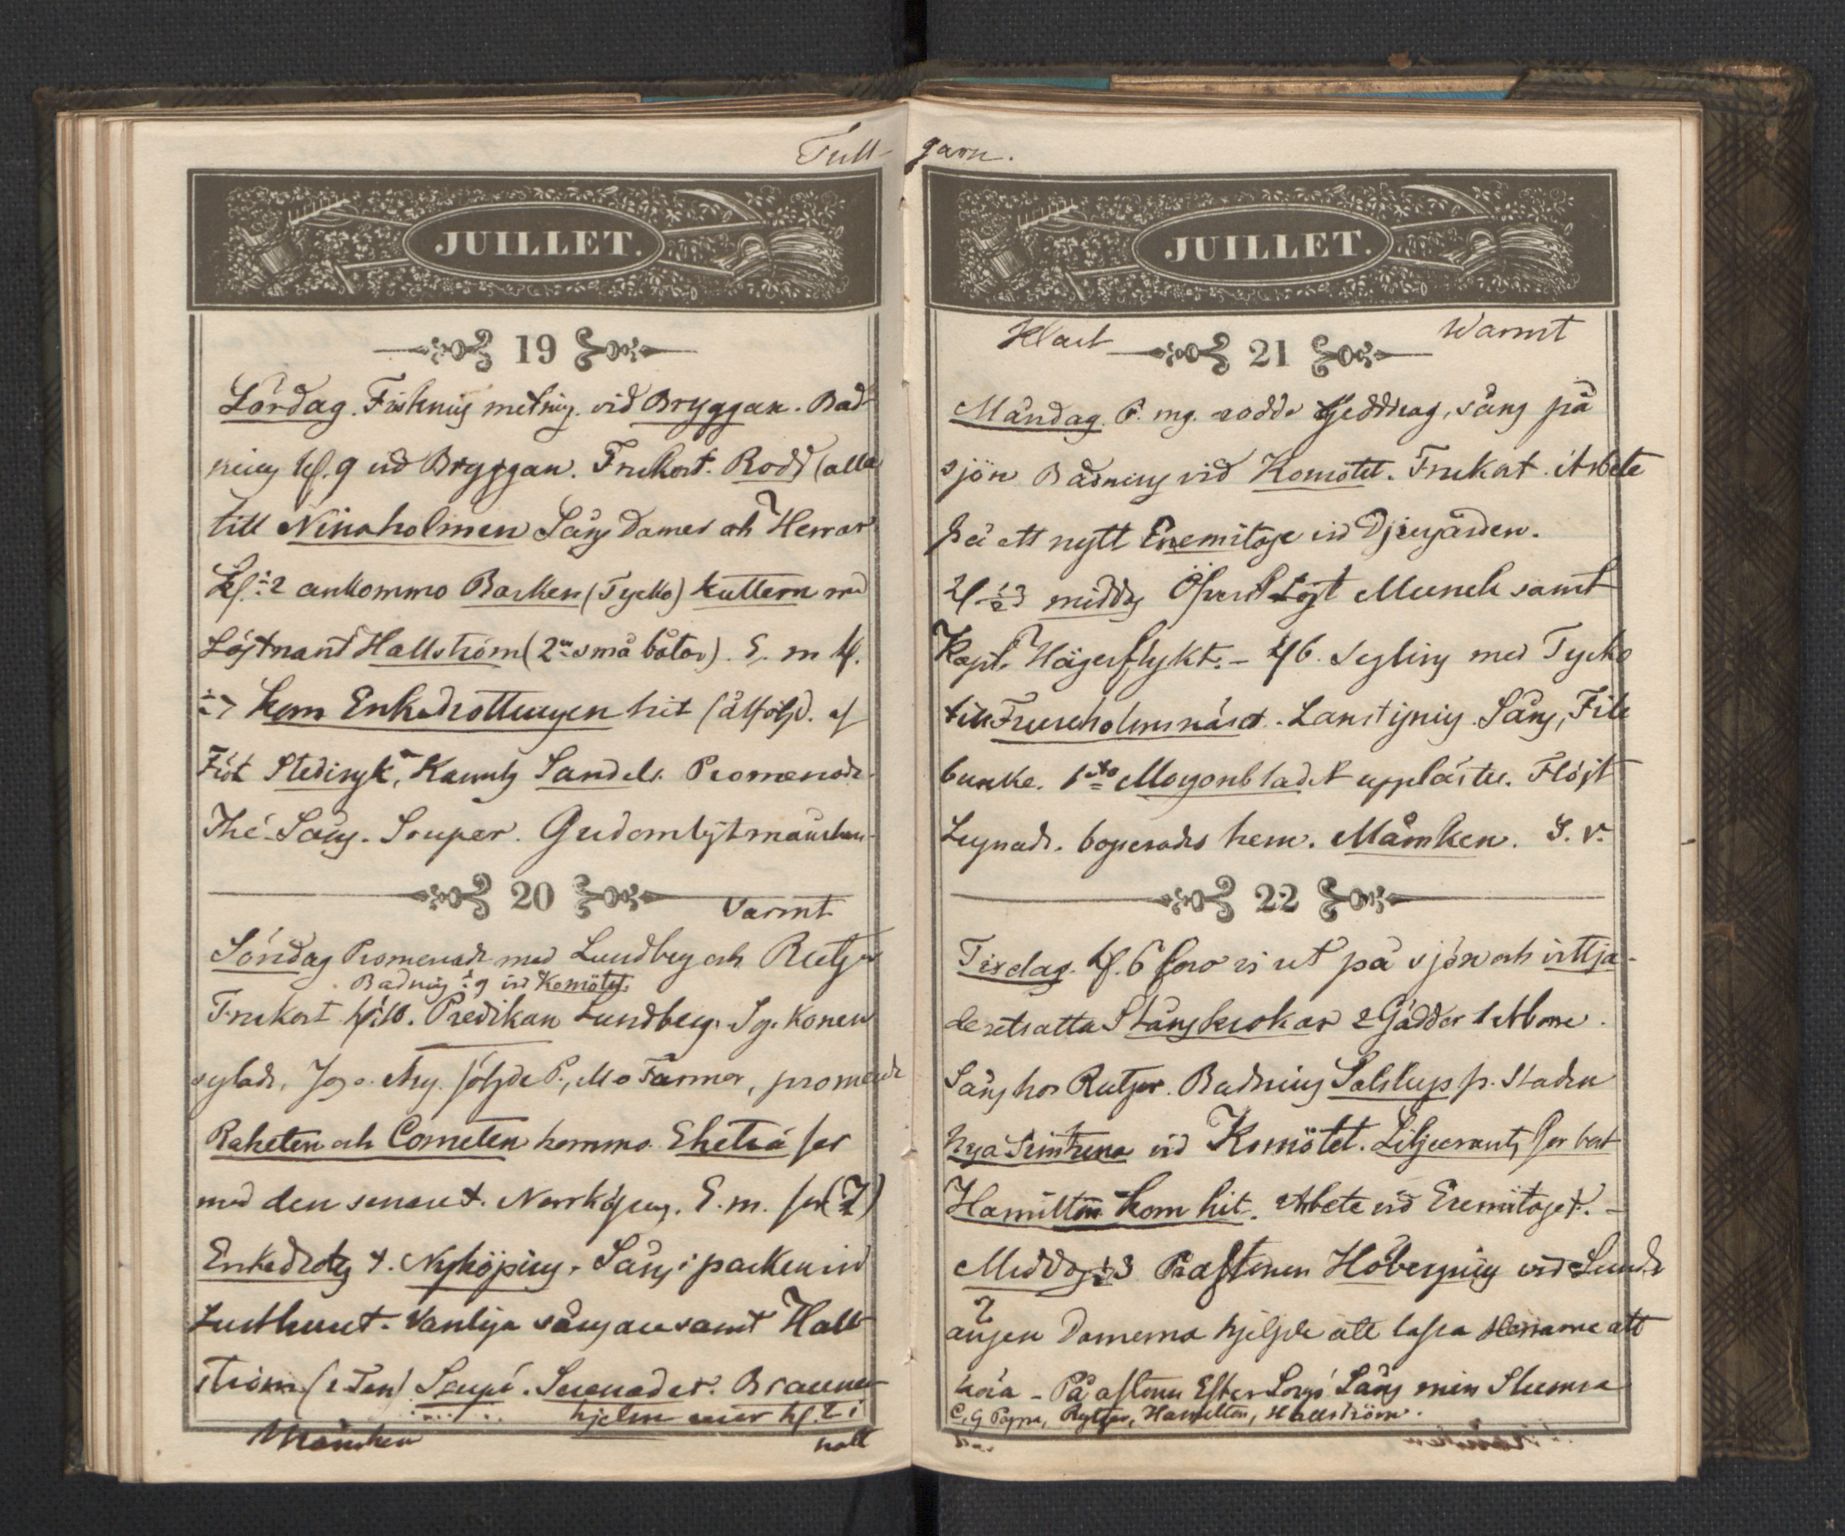 Tull- garn.
JUILLET.
19
Lördag. Fiskning metning vid Bryggan. Bad-
ning kl. 9 vid Bryggan. Frukost. Rodd (alla
till Ninaholmen Sång Damer och Herrar
Kl. ½2 ankommo Barken (Tycko) kuttern med
Löjtnant Hallström (2ne små båtar). E. m kl.
½7 kom Enkedrottningen hit (åtföljd. af
Stedingk, Sandels. Promenade.
Thé. Sång. Souper. Gudomligt månsken-
20
Varmt
Söndag Promenade med Lundberg och Rutger
Badning ½9 vid Komötet.
Frukost ½10. Predikan Lundberg. Konen
seglade. Jag o. följde P., M o Farmor, promenade
Raketen och Cometen kommo. Eketrä for
med den senare t. Norrköping. E. m. for (7)
Enkedrotg t. Nyköping. Sång i parken vid
Lusthuset. Vanliga sångare samt Hall-
ström (1 Ten) Soupé. Serenader. Braune-
hjelm kl. 2 i
Månsken natt
JUILLET.
Klart 21 Warmt
Måndag. F. mg. rodde Gäddrag, sång på
sjön Badning vid Komötet. Frukost. Arbete
på ett nytt Eremitage vid Djurgården.
Kl ½3 middag Öfverst Löjt Munck samt
Kapt. Hägerflykt. – Kl 6. Segling med Tycko
till Fruholmsnäset. Landstigning. Sång, Fil-
bunke. 1sta Morgonbladet upplästes. Flöjt
Lugnade. bogserades hem. Månsken. S. v.
22
Tisdag. Kl. 6 foro vi ut på sjön och vittja-
de utsatta Stångkrokar 2 Gäddor 1 Aborre.
Sång hos Rutger. Badning Salskup fr. Staden
Nya Simtrena vid Komötet. Liljecrantz for bort
Hamilton kom hit. Arbete vid Eremitaget. –
Middag ½3 På aftonen Höbergning vid Lund-
ängen Damerna hjelpte att lassa Herrarne att
köra – På aftonen Efter Soupé Sång min Stumma
C, G Rutger, Hamilton, Hallström.